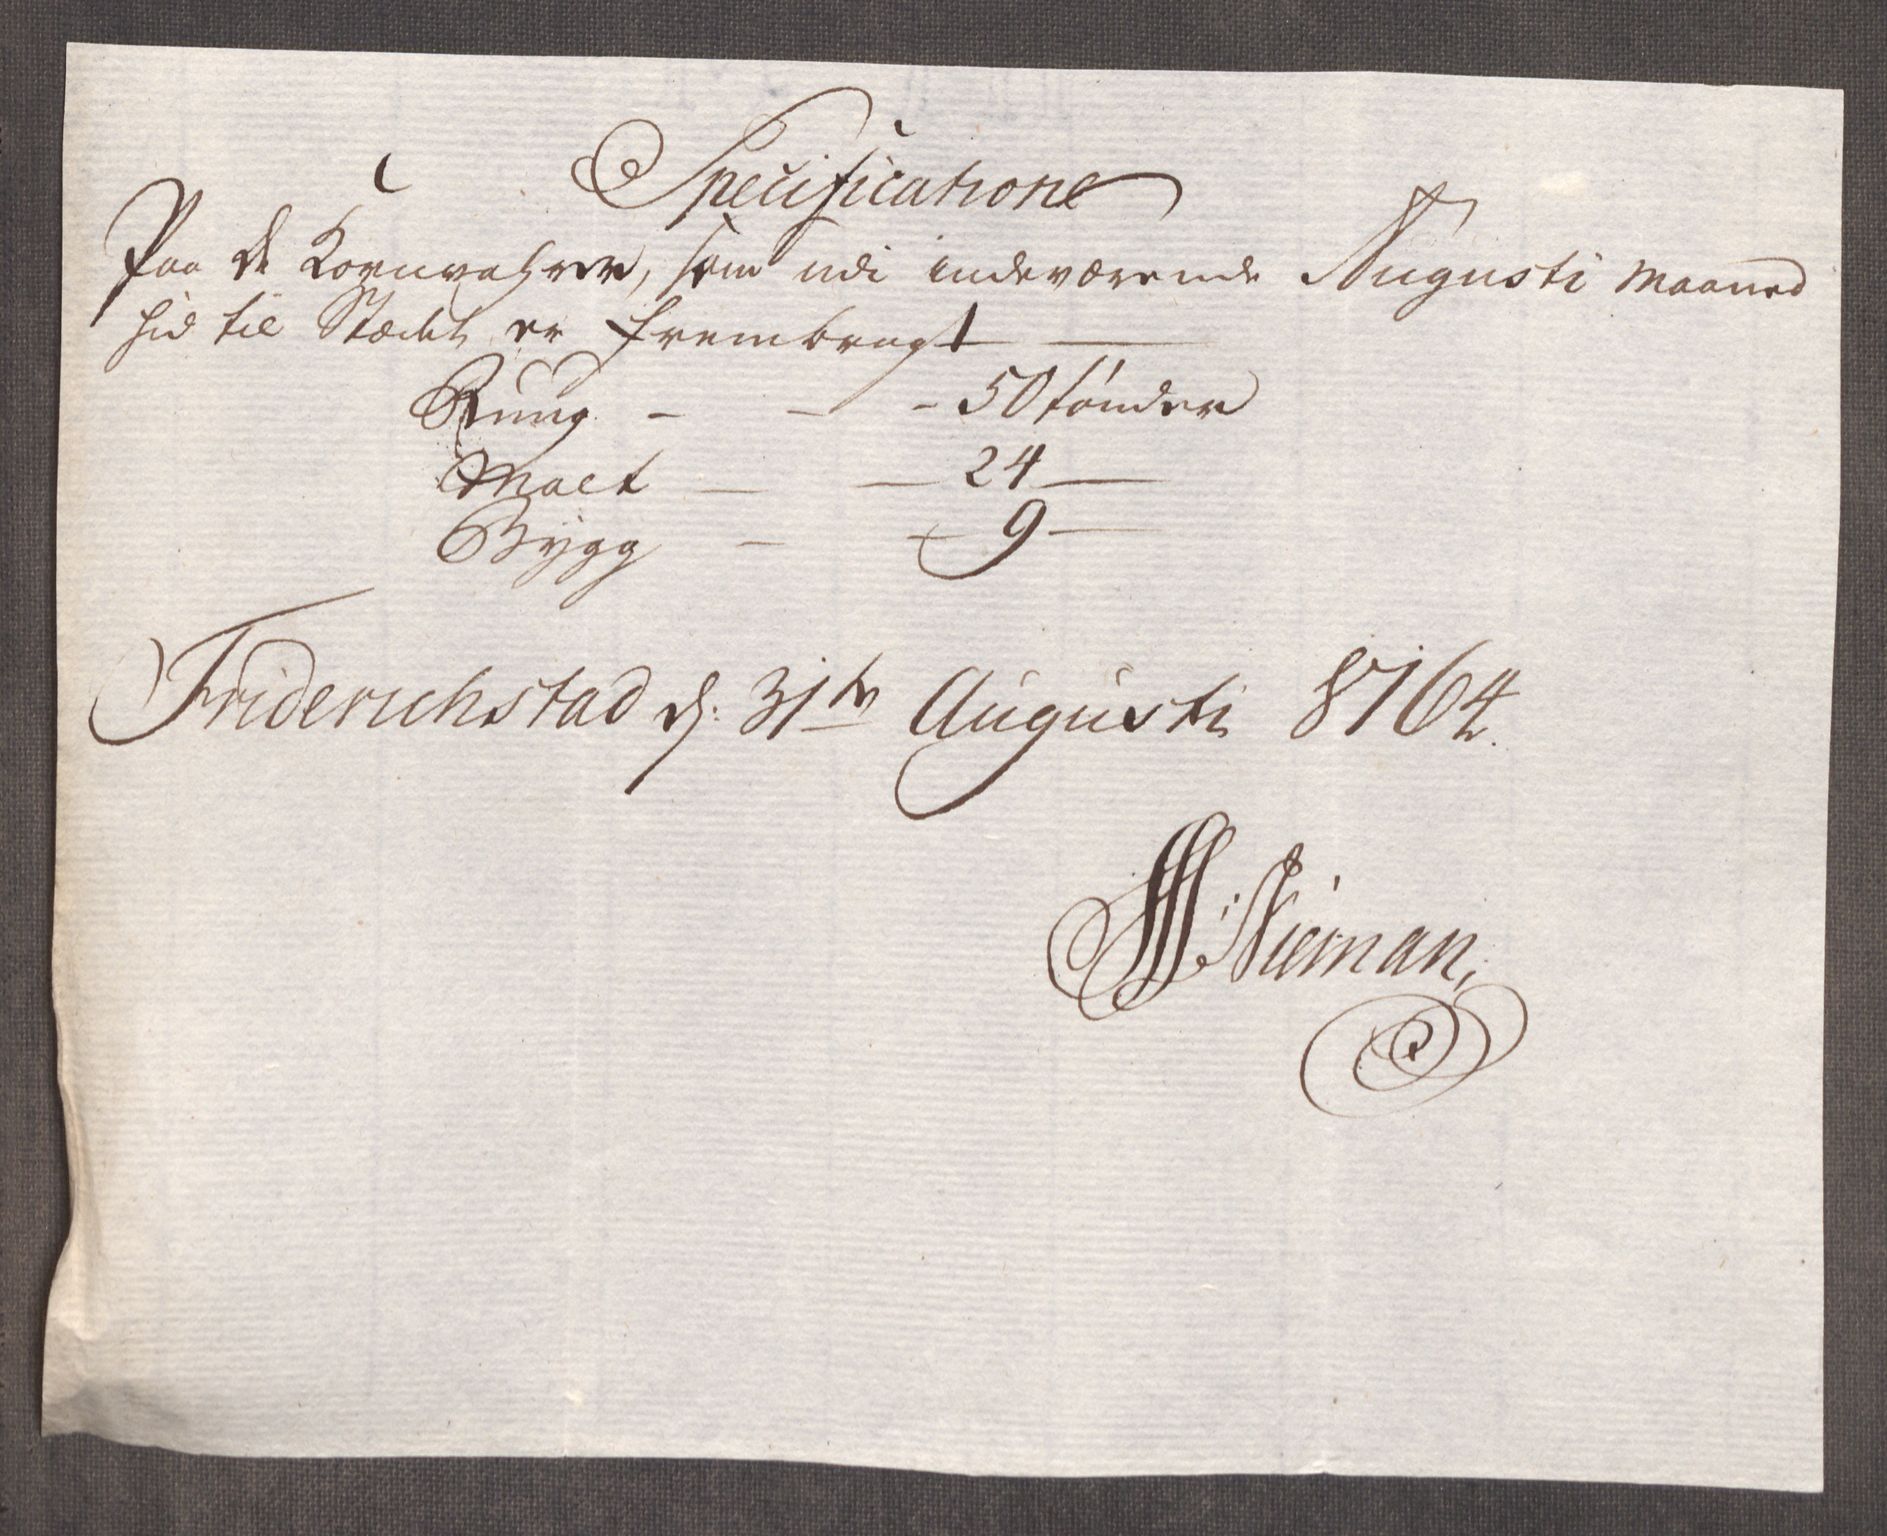 Specificatione
Paa de Kornvahrer, som udi indeværende Augusti Maaned
hid til Stædet er frembragt
Rung - - - 50 tønder
Malt — — 24 —
Bygg — — 9 —
Friderichstad d: 31te Augusti 1764.
Nieman,